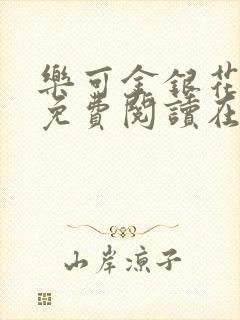 樂可金銀花
免費閱讀在
山岸凉子